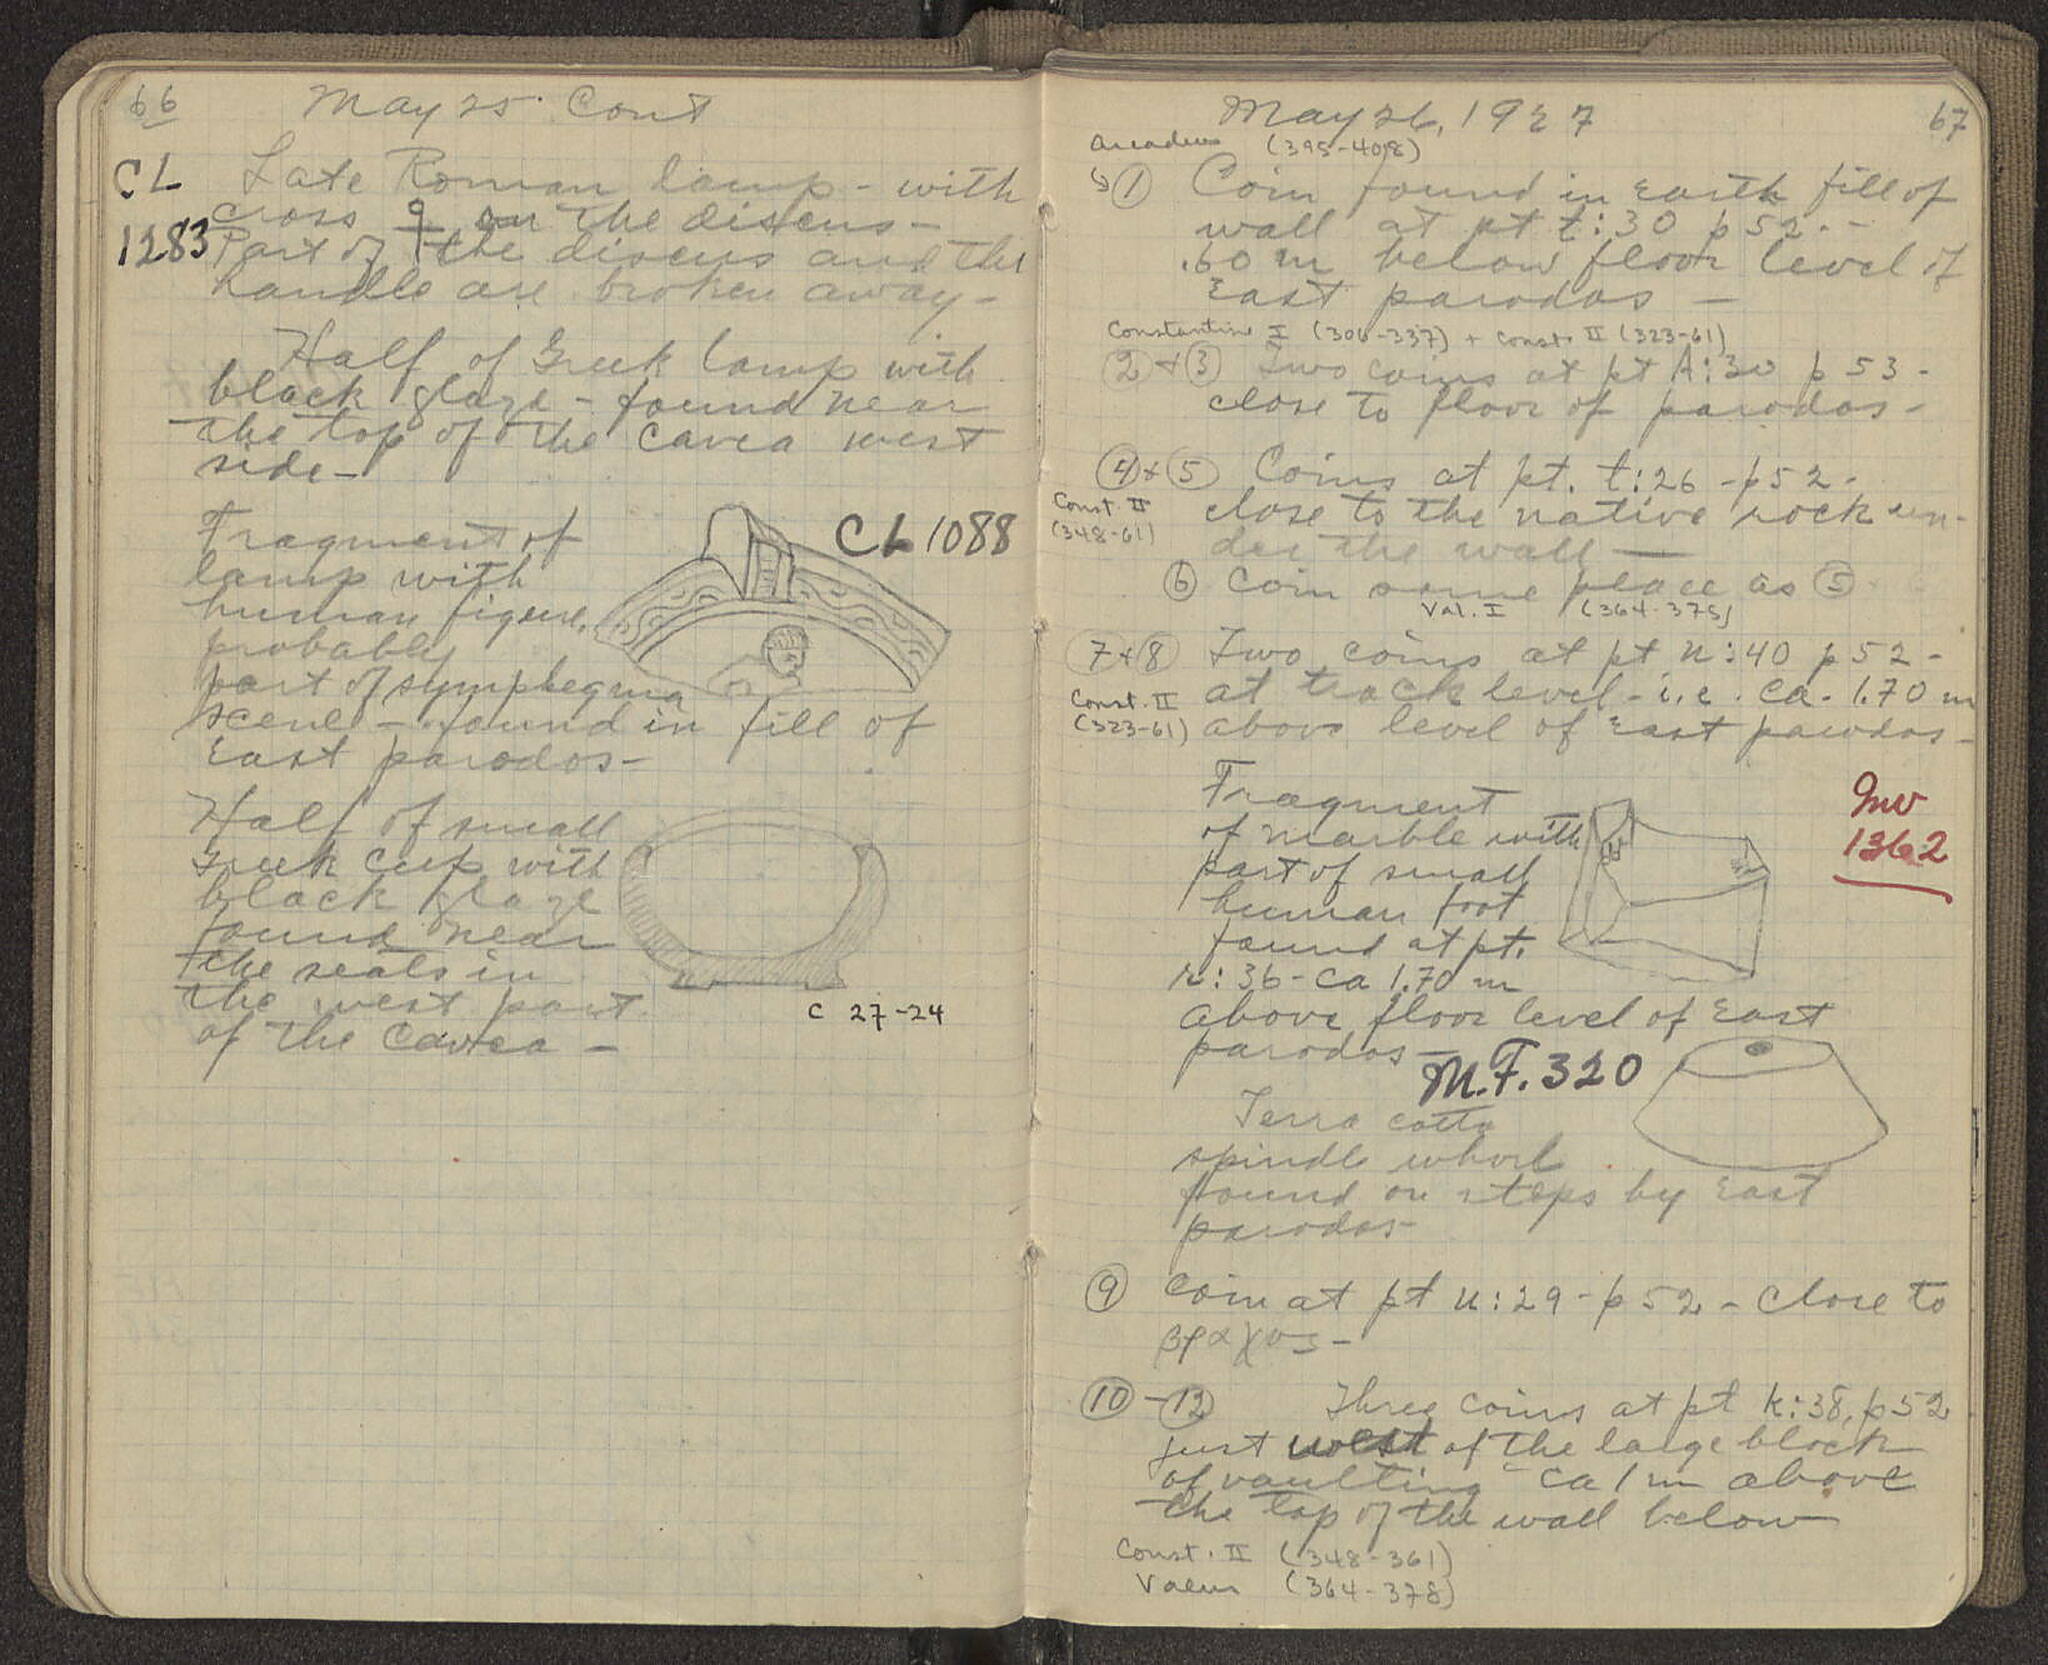 66
May 25. Cont
CL
1283
Late Roman lamp - with
cross on the discus -
Part of the discus and the
handle are broken away -
Half of Greek lamp with
black glaze - found near
the top of the cavea west
side -
CL 1088
Fragment of
lamp with
human figure,
probably
part of symplegma
scene - found in fill of
East parodos -
Half of small
Greek cup with
black glaze
found near
the seats in
the west part
of the cavea -
C 27-24
67
May 26, 1927
Arcadius (395-408)
① Coin found in earth fill of
wall at pt t:30 p 52. -
.60 m below floor level of
East parodos -
Constantine I (306-337) + Const. II (323-61)
② + ③ Two coins at pt A:30 p 53 -
close to floor of parodos -
④ + ⑤ Coins at pt. t:26 - p 52 -
Const. II
(348-61)
close to the native rock un-
der the wall -
⑥ Coin same place as ⑤
Val. I (364-375)
7 + 8 Two coins at pt u:40 p 52 -
Const. II
(323-61)
at track level - i.e. ca. 1.70 m
above level of East parodos -
Inv
1362
Fragment
of marble with
part of small
human foot
found at pt.
r:36 - ca 1.70 m
above floor level of East
parodos -
M.F. 320
Terra cotta
spindle whorl
found on steps by East
parodos -
⑨ Coin at pt u:29 - p 52 - close to
βράχος -
⑩ - ⑫ Three coins at pt k:38, p 52
just west of the large block
of vaulting - ca 1 m above
the top of the wall below
Const. II (348-361)
Valens (364-378)